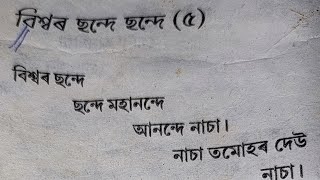 বিশ্বৰ ছন্দে ছন্দে (৫)
বিশ্বৰ ছন্দে
ছন্দে মহানন্দে
আনন্দে নাচা।
নাচা তমোহৰ দেউ
নাচা।